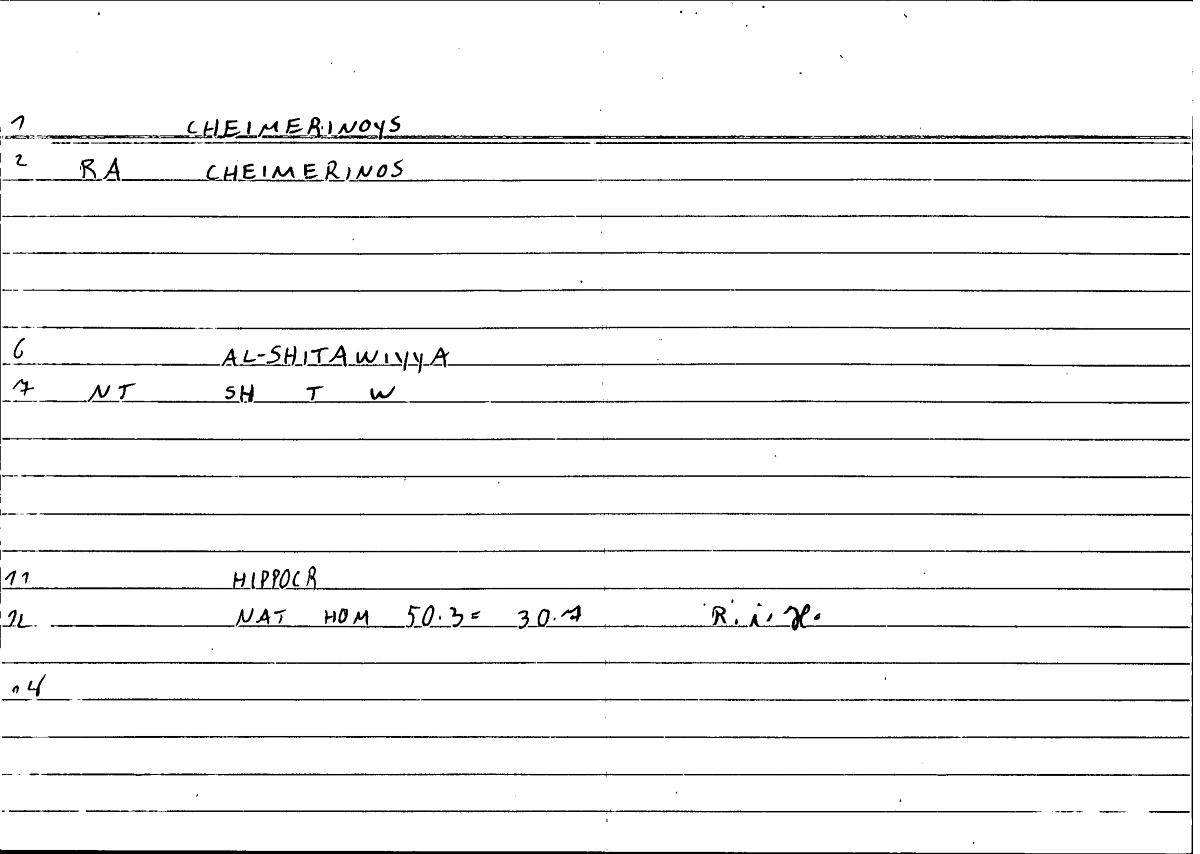 1 CHEIMERINOYS
2 RA CHEIMERINOS
6 AL-SHITAWIYYA
7 NT SH T W
11 HIPPOCR
12 NAT HOM 50.3= 30.7 R. i. H.
14